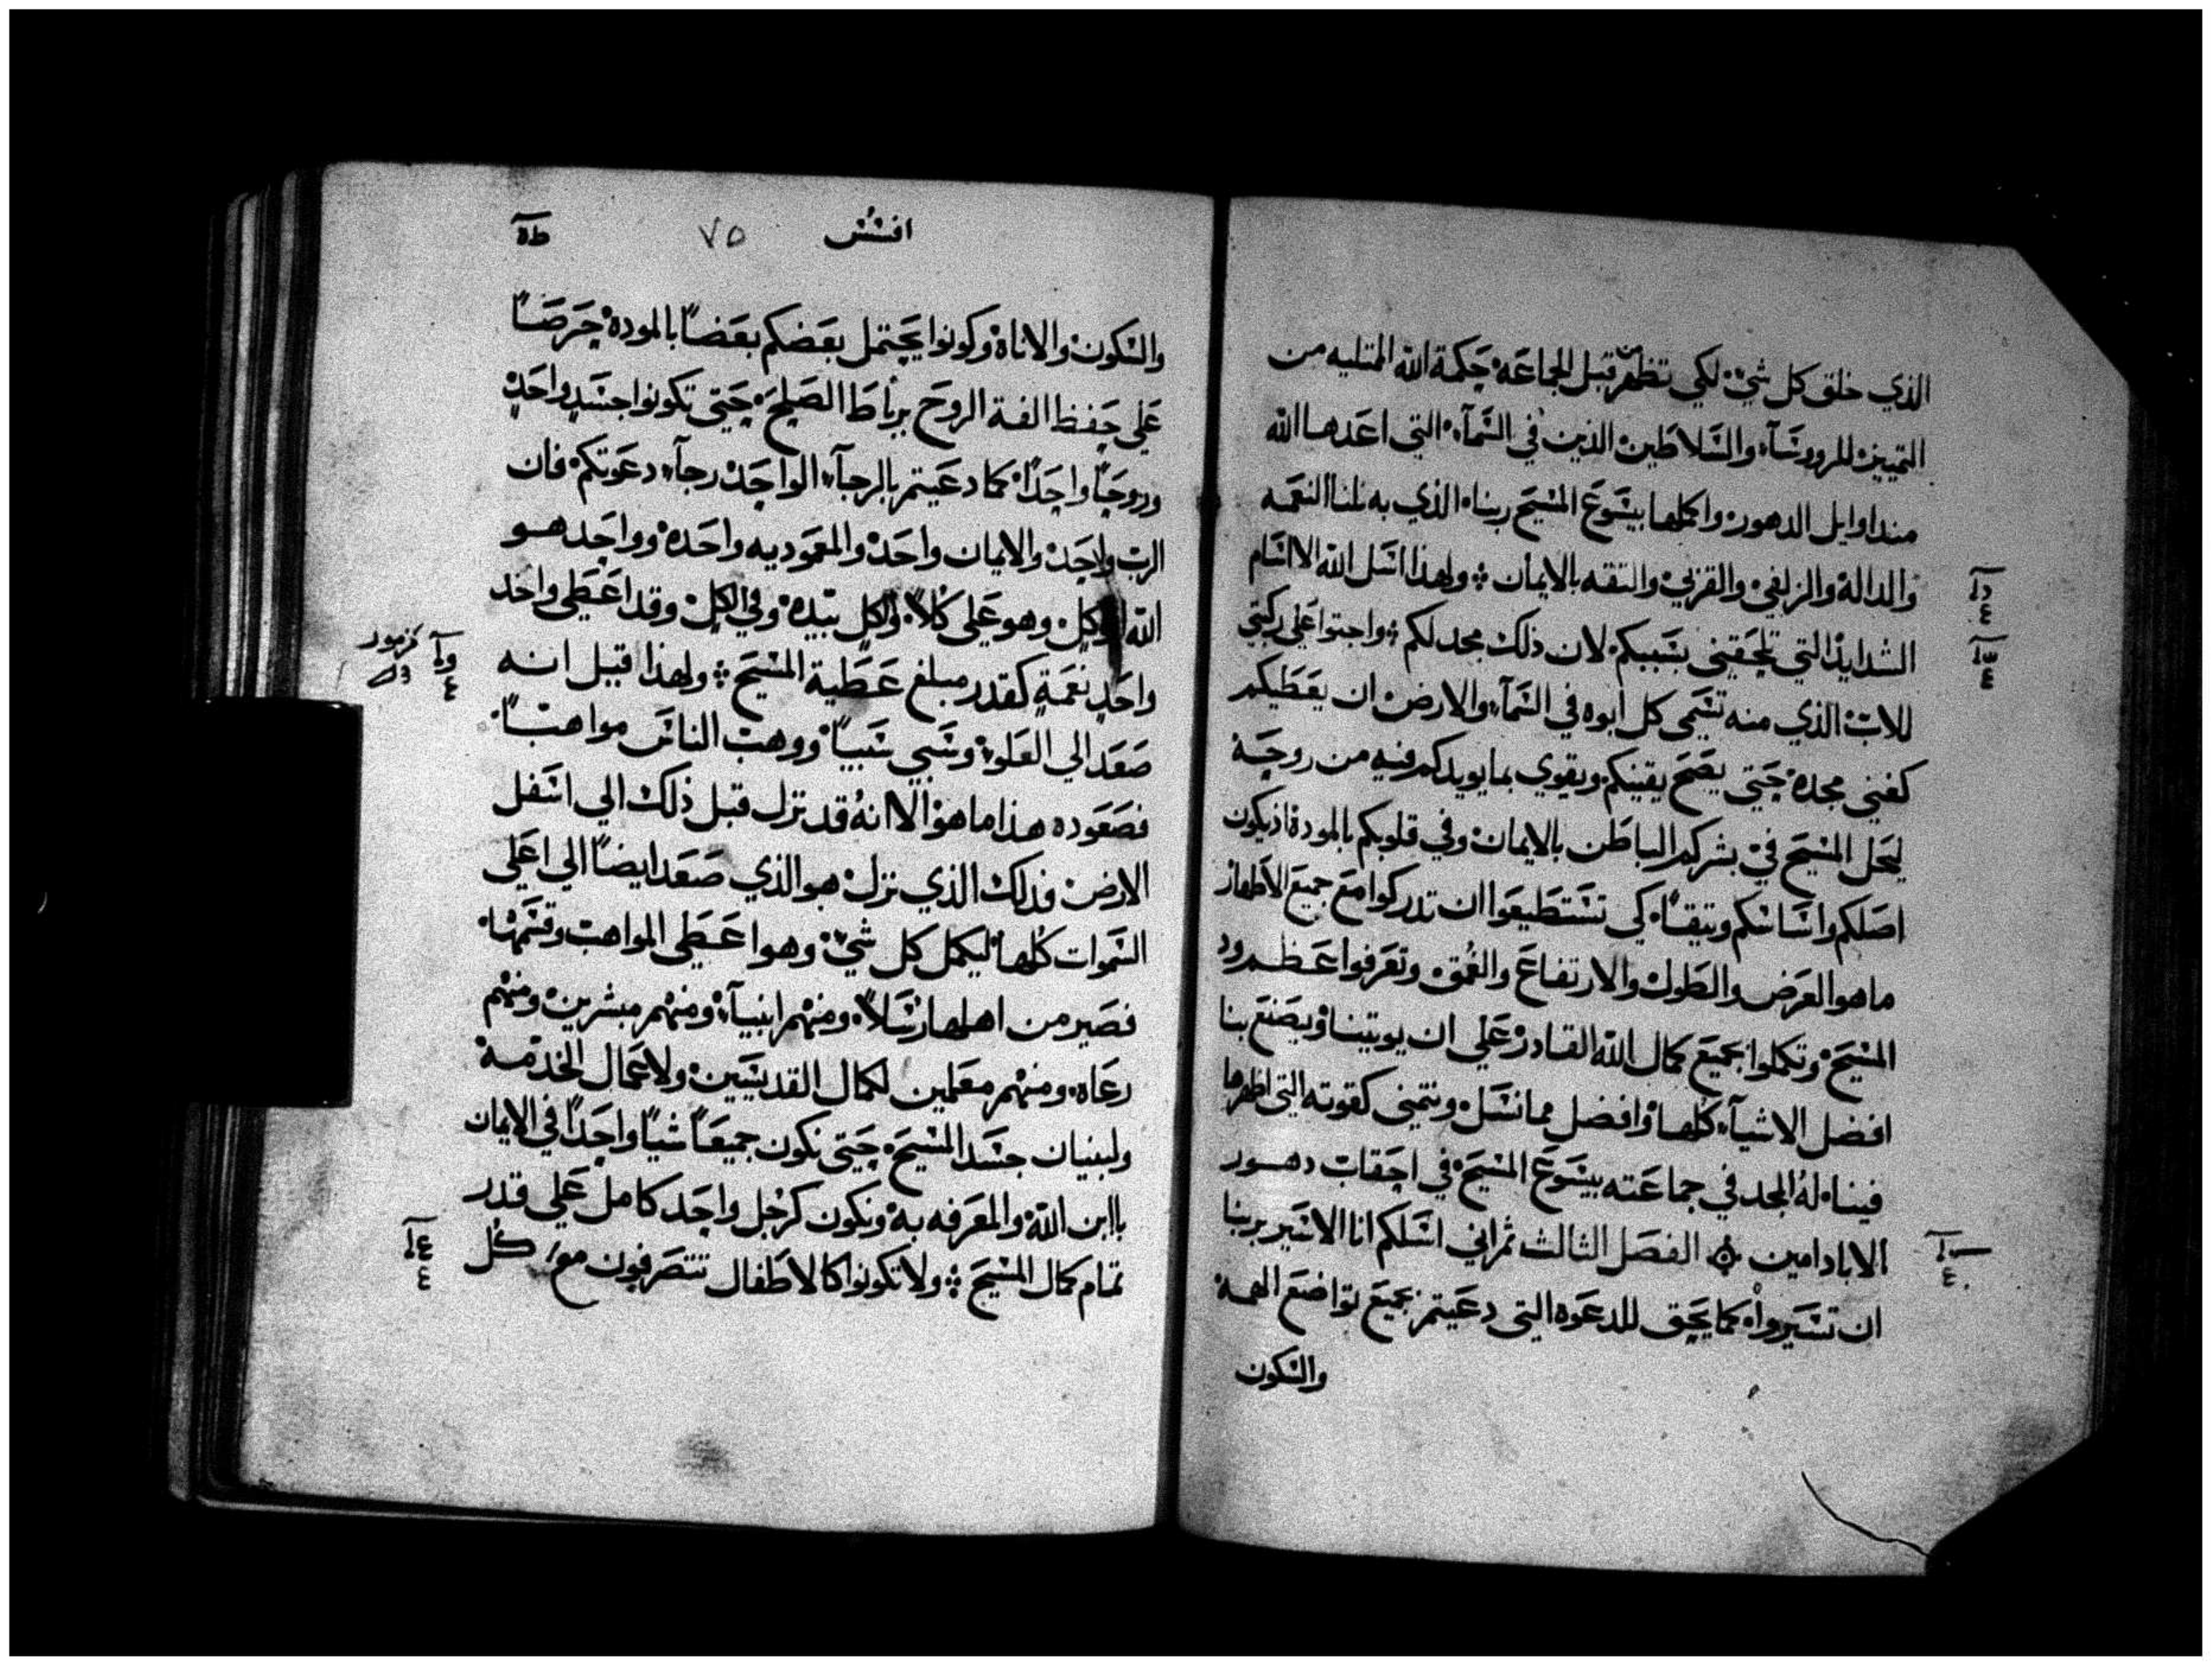 الذي خلق كل شي لكي تظهر من قبل الجماعه حكمة الله الممتليه من
التمييز للرووسآء والسلاطين الذين في السمآء التي اعدها الله
منذ اوايل الدهور واكملها بيسوع المسيح ربنا الذي به نلنا النعمه
والدالة والزلفي والقربي والثقه بالايمان ولهذا اسل الله الا اسام
الشدايد التي تلحقني بسببكم لان ذلك مجد لكم واجثوا علي ركبتي
للاب الذي منه تسمي كل ابوه في السمآء والارض ان يعطيكم
كغني مجده حتي يصح يقينكم ويقوي بما يويدكم فيه من روحه
ليحل المسيح في بشركم الباطن بالايمان وفي قلوبكم بالمودة اذ يكون
اصلكم واساسكم وثيقاً كي تستطيعوا ان تدركوا مع جميع الاطهار
ما هو العرض والطول والارتفاع والعمق وتعرفوا عظم ود
المسيح وتكملوا بجميع كمال الله القادر علي ان يوتينا ويصنع بنا
افضل الاشيآء كلها وافضل مما نسل ونتمني كقوته التي اظهرها
فينا له المجد في جماعته بيسوع المسيح في احقاب دهور
الاباد امين الفصل الثالث ثم اني اسلكم انا الاسير بربنا
ان تسيروا كما يحق للدعوه التي دعيتم بجميع تواضع الهمه
والسكون
افسس ٧٥
والسكون والاناة وكونوا يحتمل بعضكم بعضاً بالمودة حرصاً
علي حفظ الفة الروح برباط الصلح حتي تكونوا جسد واحد
وروحاً واحداً كما دعيتم بالرجآء الواحد رجآء دعوتكم فان
الرب واحد والايمان واحد والمعموديه واحده وواحد هو
الله وهو علي كلاً والكل بيده وفي الكل وقد اعطي واحد
واحد نعمة كقدر مبلغ عطية المسيح ولهذا قيل انه
مزمور
صعد الي العلو وسبي سبياً ووهب الناس مواهباً
فصعوده هذا ما هو الا انه قد نزل قبل ذلك الي اسفل
الارض فذلك الذي نزل هو الذي صعد ايضاً الي اعلي
السموات كلها ليكمل كل شي وهو اعطي المواهب وقسمها
فصير من اهلها رسلاً ومنهم انبيآء ومنهم مبشرين ومنهم
رعاه ومنهم معلمين لكمال القديسين ولاعمال الخدمة
ولبنيان جسد المسيح حتي نكون جميعاً شياً واحداً في الايمان
باابن الله والمعرفه به ونكون كرجل واحد كامل علي قدر
تمام كمال المسيح ولا تكونوا كالاطفال تتصرفون مع كل